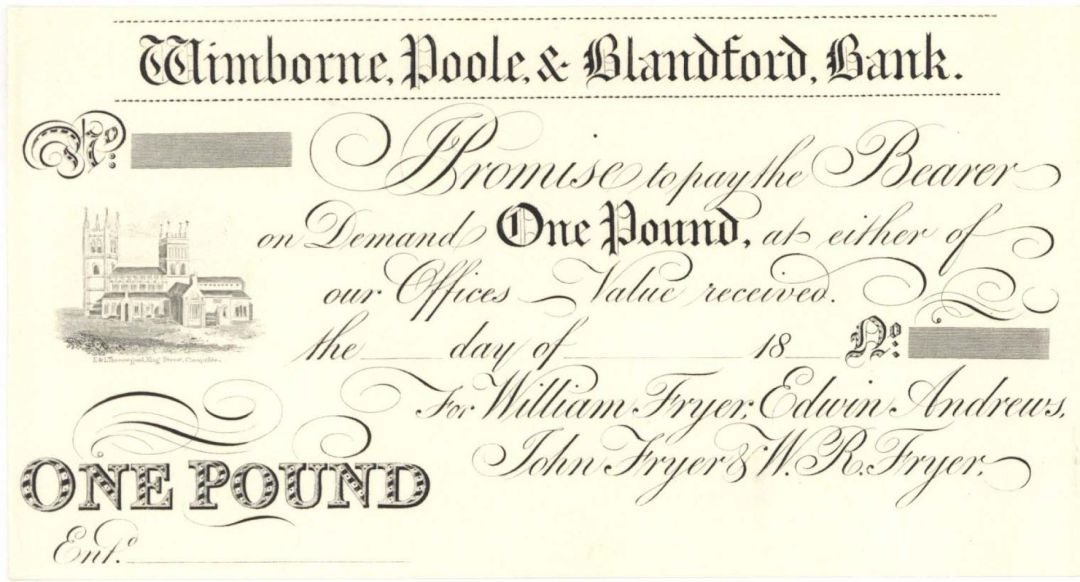 Wimborne, Poole, & Blandford, Bank.
No:
I Promise to pay the Bearer
on Demand One Pound, at either of
our Offices Value received.
the ____ day of ________ 18__ No:
For William Fryer, Edwin Andrews,
John Fryer & W. R. Fryer.
ONE POUND
Entd.